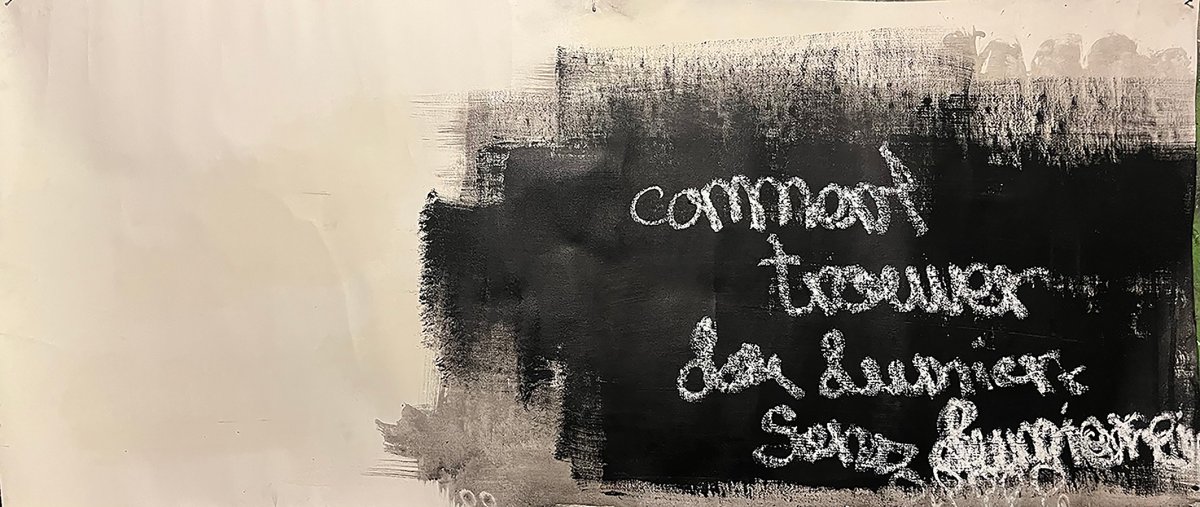 comment
trouver
de la lumier
sans lumiere